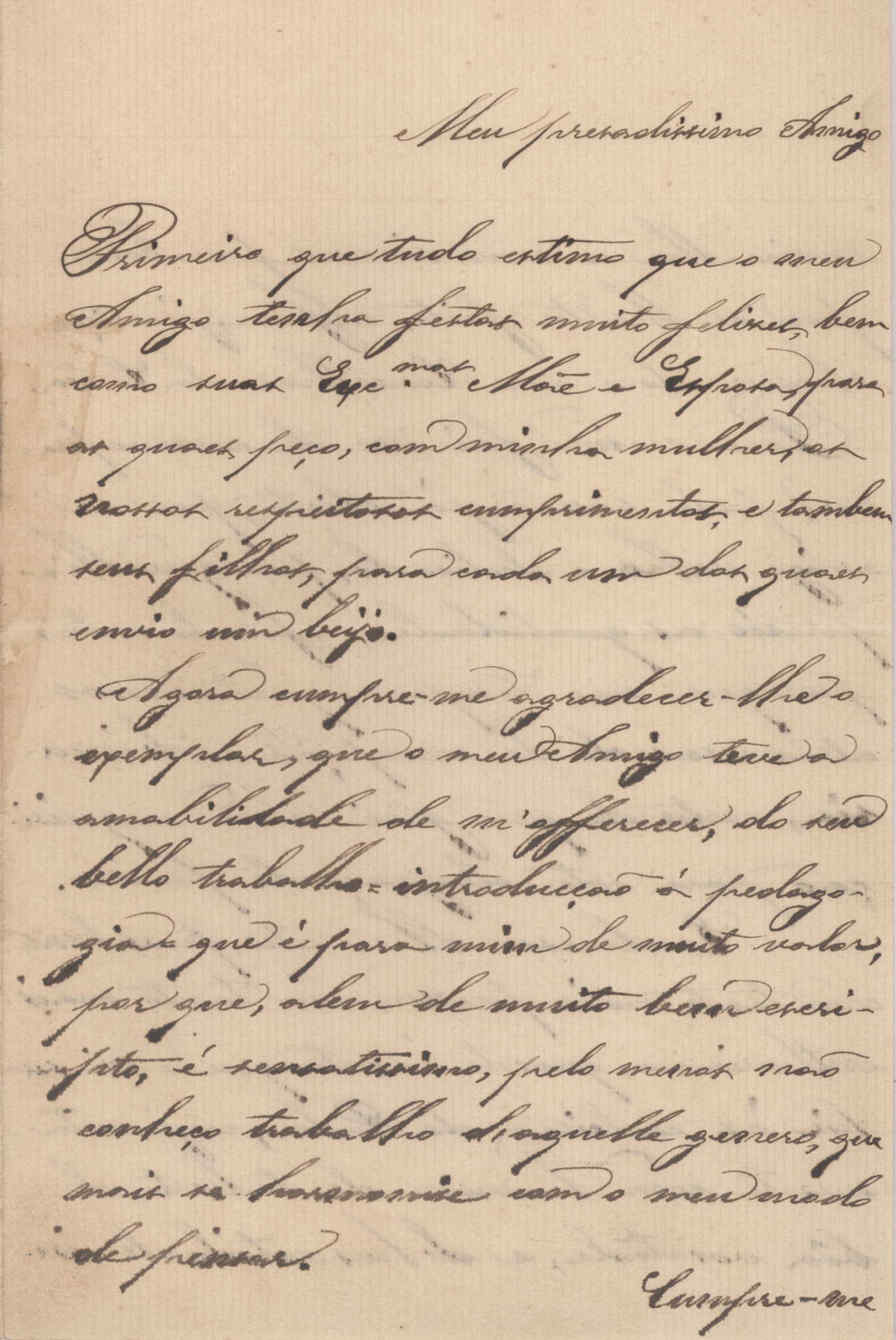 Meu presadissimo Amigo
Primeiro que tudo estimo que o meu
Amigo tenha festas muito felises, bem
como suas Exc.mas Mãe e Esposa, para
as quaes peço, com minha mulher, os
nossos respeitosos cumprimentos, e tambem
seus filhos, para cada um dos quaes
envio um beijo.
Agora cumpre-me agradecer-lhe o
exemplar, que o meu Amigo teve a
amabilidade de m'offerecer, do seu
bello trabalho = introducção á pedago-
gia = que é para mim de muito valor,
por que, alem de muito bem escri-
pto, é sensatissimo, pelo menos não
conheço trabalho d'aquelle genero, que
mais se harmonise com o meu modo
de pensar.
Cumpre-me